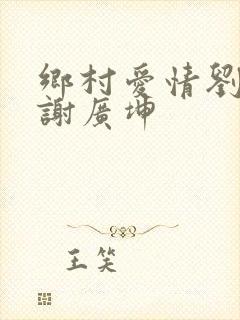 鄉村愛情劉
謝廣坤
王笑